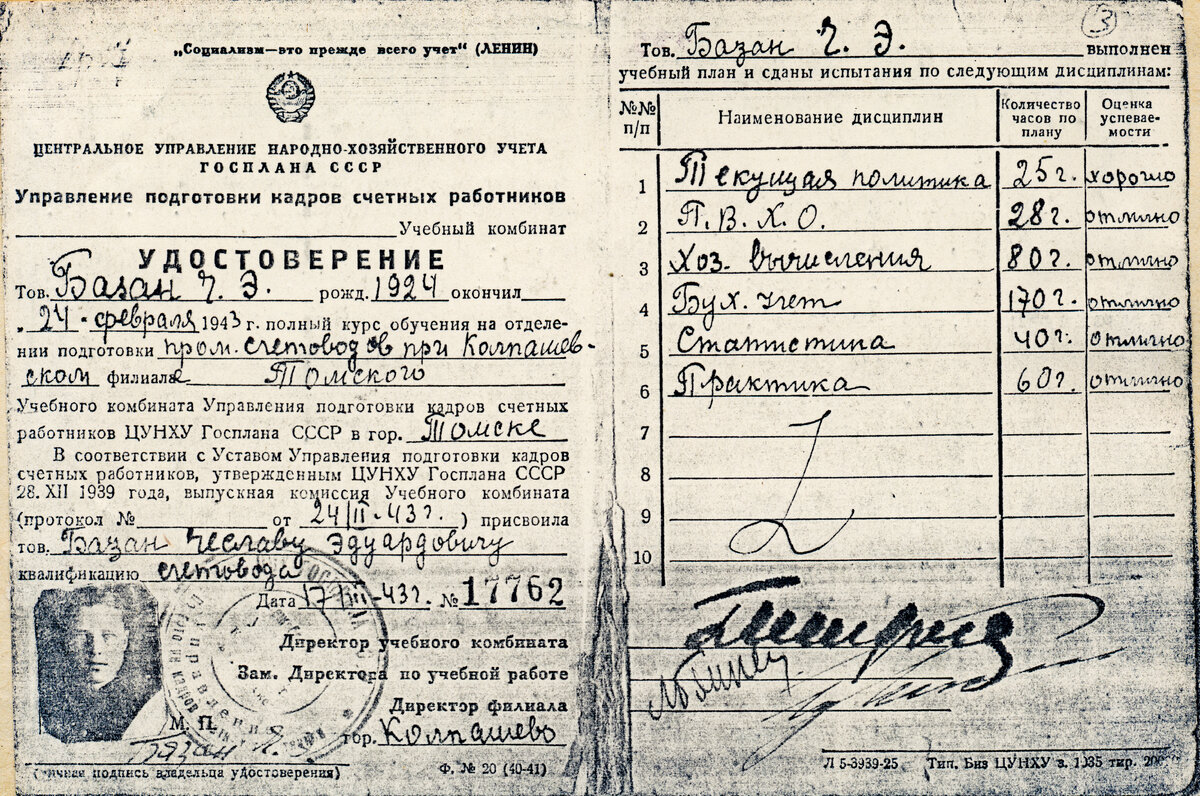 „Социализм—это прежде всего учет“ (ЛЕНИН)
ЦЕНТРАЛЬНОЕ УПРАВЛЕНИЕ НАРОДНО-ХОЗЯЙСТВЕННОГО УЧЕТА
ГОСПЛАНА СССР
Управление подготовки кадров счетных работников
Учебный комбинат
УДОСТОВЕРЕНИЕ
Тов. Базан Ч. Э. рожд. 1924 окончил
„24 - февраля 1943 г. полный курс обучения на отделе-
нии подготовки пром. счетоводов при Колпашев-
ском филиале Томского
Учебного комбината Управления подготовки кадров счетных
работников ЦУНХУ Госплана СССР в гор. Томске
В соответствии с Уставом Управления подготовки кадров
счетных работников, утвержденным ЦУНХУ Госплана СССР
28. XII 1939 года, выпускная комиссия Учебного комбината
(протокол № от 24/II-43 г.) присвоила
тов. Базан Чеславу Эдуардовичу
квалификацию счетовода
Дата 17/III-43 г. № 17762
Директор учебного комбината
Зам. Директора по учебной работе
Директор филиала
М. П.
гор. Колпашево
(личная подпись владельца удостоверения)
Ф. № 20 (40-41)
3
Тов. Базан Ч. Э. выполнен
учебный план и сданы испытания по следующим дисциплинам:
№№ п/п Наименование дисциплин Количество часов по плану Оценка успевае-мости
1 Текущая политика 25 г. хорошо
2 П. В. Х. О. 28 г. отлично
3 Хоз. вычисления 80 г. отлично
4 Бух. учет 170 г. отлично
5 Статистика 40 г. отлично
6 Практика 60 г. отлично
7
8
9
10
Л 5-3939-25 Тип. Биз ЦУНХУ з. 1035 тир.